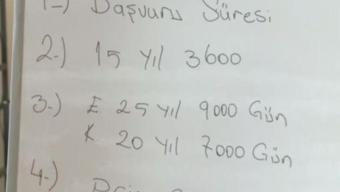 1-) Başvuru Süresi
2.) 15 yıl 3600
3.) E 25 yıl 9000 Gün
K 20 yıl 7000 Gün
4.)